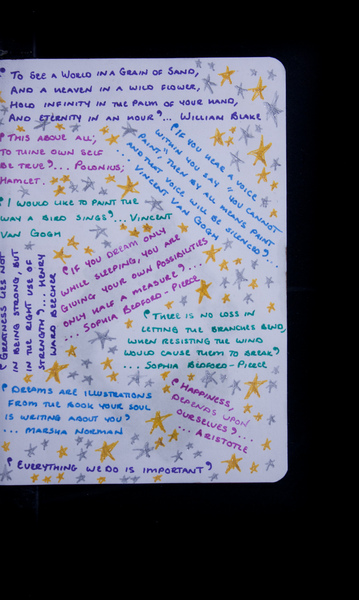 ❛ To see a World in a Grain of Sand,
And a Heaven in a Wild Flower,
Hold Infinity in the palm of your hand,
And Eternity in an hour❜... Willian Blake
❛This above all;
to thine own self
be true❜... Polonius;
Hamlet.
❛If you hear a voice
within you say "you cannot
paint", then by all means paint
and that voice will be silenced❜...
Vincent Van Gogh
❛I would like to paint the
way a bird sings❜... Vincent
Van Gogh
❛Greatness lies not
in being strong, but
in the right use of
strength❜... Henry
Ward Beecher
❛If you dream only
while sleeping, you are
giving your own possibilities
only half a measure❜...
... Sophia Bedford-Pierce
❛There is no loss in
letting the branches bend,
when resisting the wind
would cause them to break❜
... Sophia Bedford-Pierce
❛Dreams are illustrations
from the book your soul
is writing about you❜
... Marsha Norman
❛Happiness,
depends upon
ourselves❜...
... Aristotle
❛Everything we do is important❜